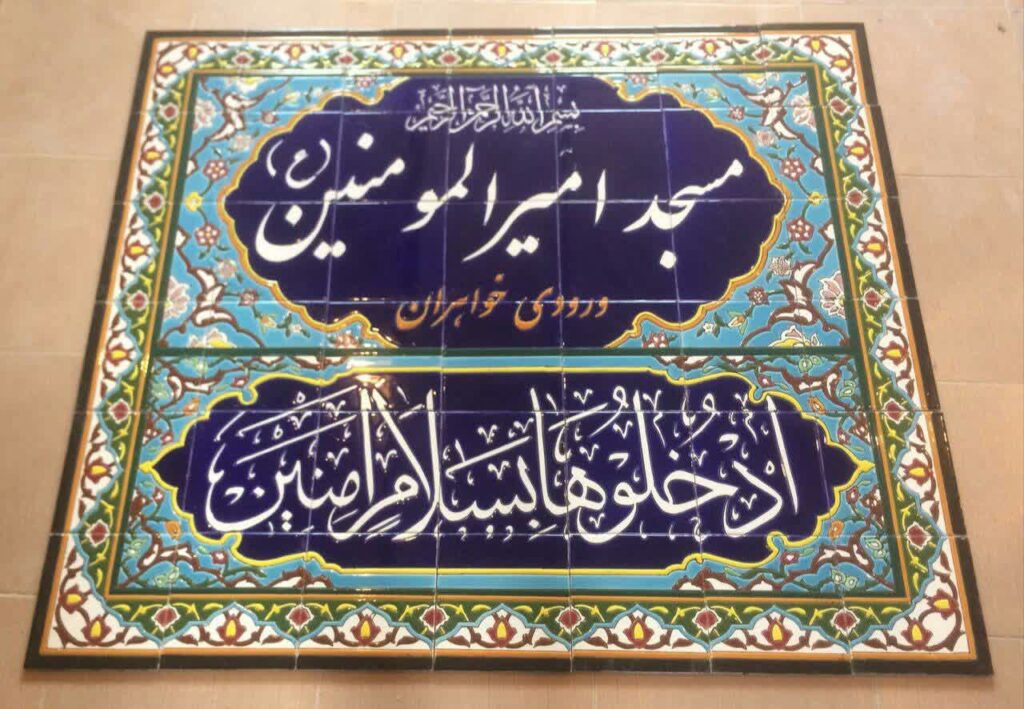 بسم الله الرحمن الرحیم
مسجد امیرالمومنین (ع)
ورودی خواهران
اُدْخُلُوهَا بِسَلَامٍ آمِنِینَ